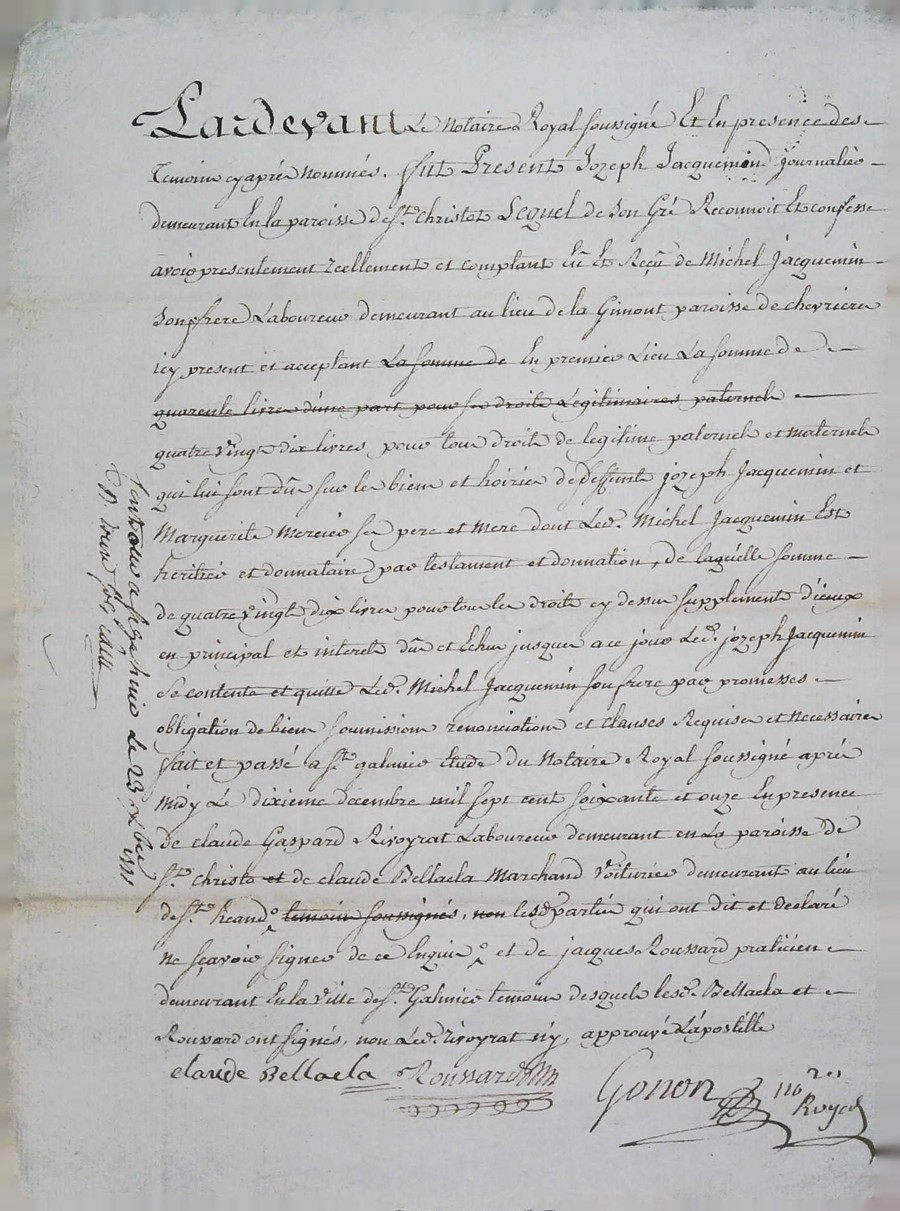 Pardevant Le Notaire Royal soussigné Et En presence des
Temoins cy aprés Nommés. fut Present Jozeph Jacquemond journalier
demeurant En la paroisse de St. Christot Lequel de Son Gré Reconnoit Et confesse
avoir presentement réellement et comptant Eû Et Reçû de Michel Jacquemin
Son frere Laboureur demeurant au lieu de la Gimont paroisse de chevriere
icy present et acceptant La somme de En premier Lieu La somme de
quarente livres d'une part pour ses droits Légitimaires paternels
quatre vingt dix livres pour tous droits de legitime paternels et maternels
qui lui sont dûs sur les biens et hoiries de deffunts jozeph Jacquemin et
Marguerite Mercier ses pere et mere dont Led. Michel Jacquemin Est
heritier et donnataire par testament et donnation, de laquelle somme
de quatre vingt dix livres pour tous les droits cy dessus supplements d'iceux
en principal et interets dûs et Echus jusques a ce jour Led. jozeph Jacquemin
Se contente et quitte Led. Michel Jacquemin son frere par promesses
obligation de biens soumissions renonciations et clauses Requises et necessaires
fait et passé a St. galmier Etude du Notaire Royal soussigné aprés
midy Le dixieme decembre mil sept cent soixante et onze En presence
de claude Gaspard Rivoyrat Laboureur demeurant en La paroisse de
St. christo et de claude Bellacla Marchand Voiturier demeurant au lieu
de St. heand temoins soussignés, non lesd. parties qui ont dit et declaré
ne sçavoir signer de ce Enquis et de jacques Roussard praticien
demeurant En la ville de St. Galmier temoins desquels lesd. Bellacla et
Roussard ont signés, non Led. Rivoyrat n'y, approuvé L'apostille
claude Bellacla Roussard
Gonon
Royal
Le 23 xbre
1771